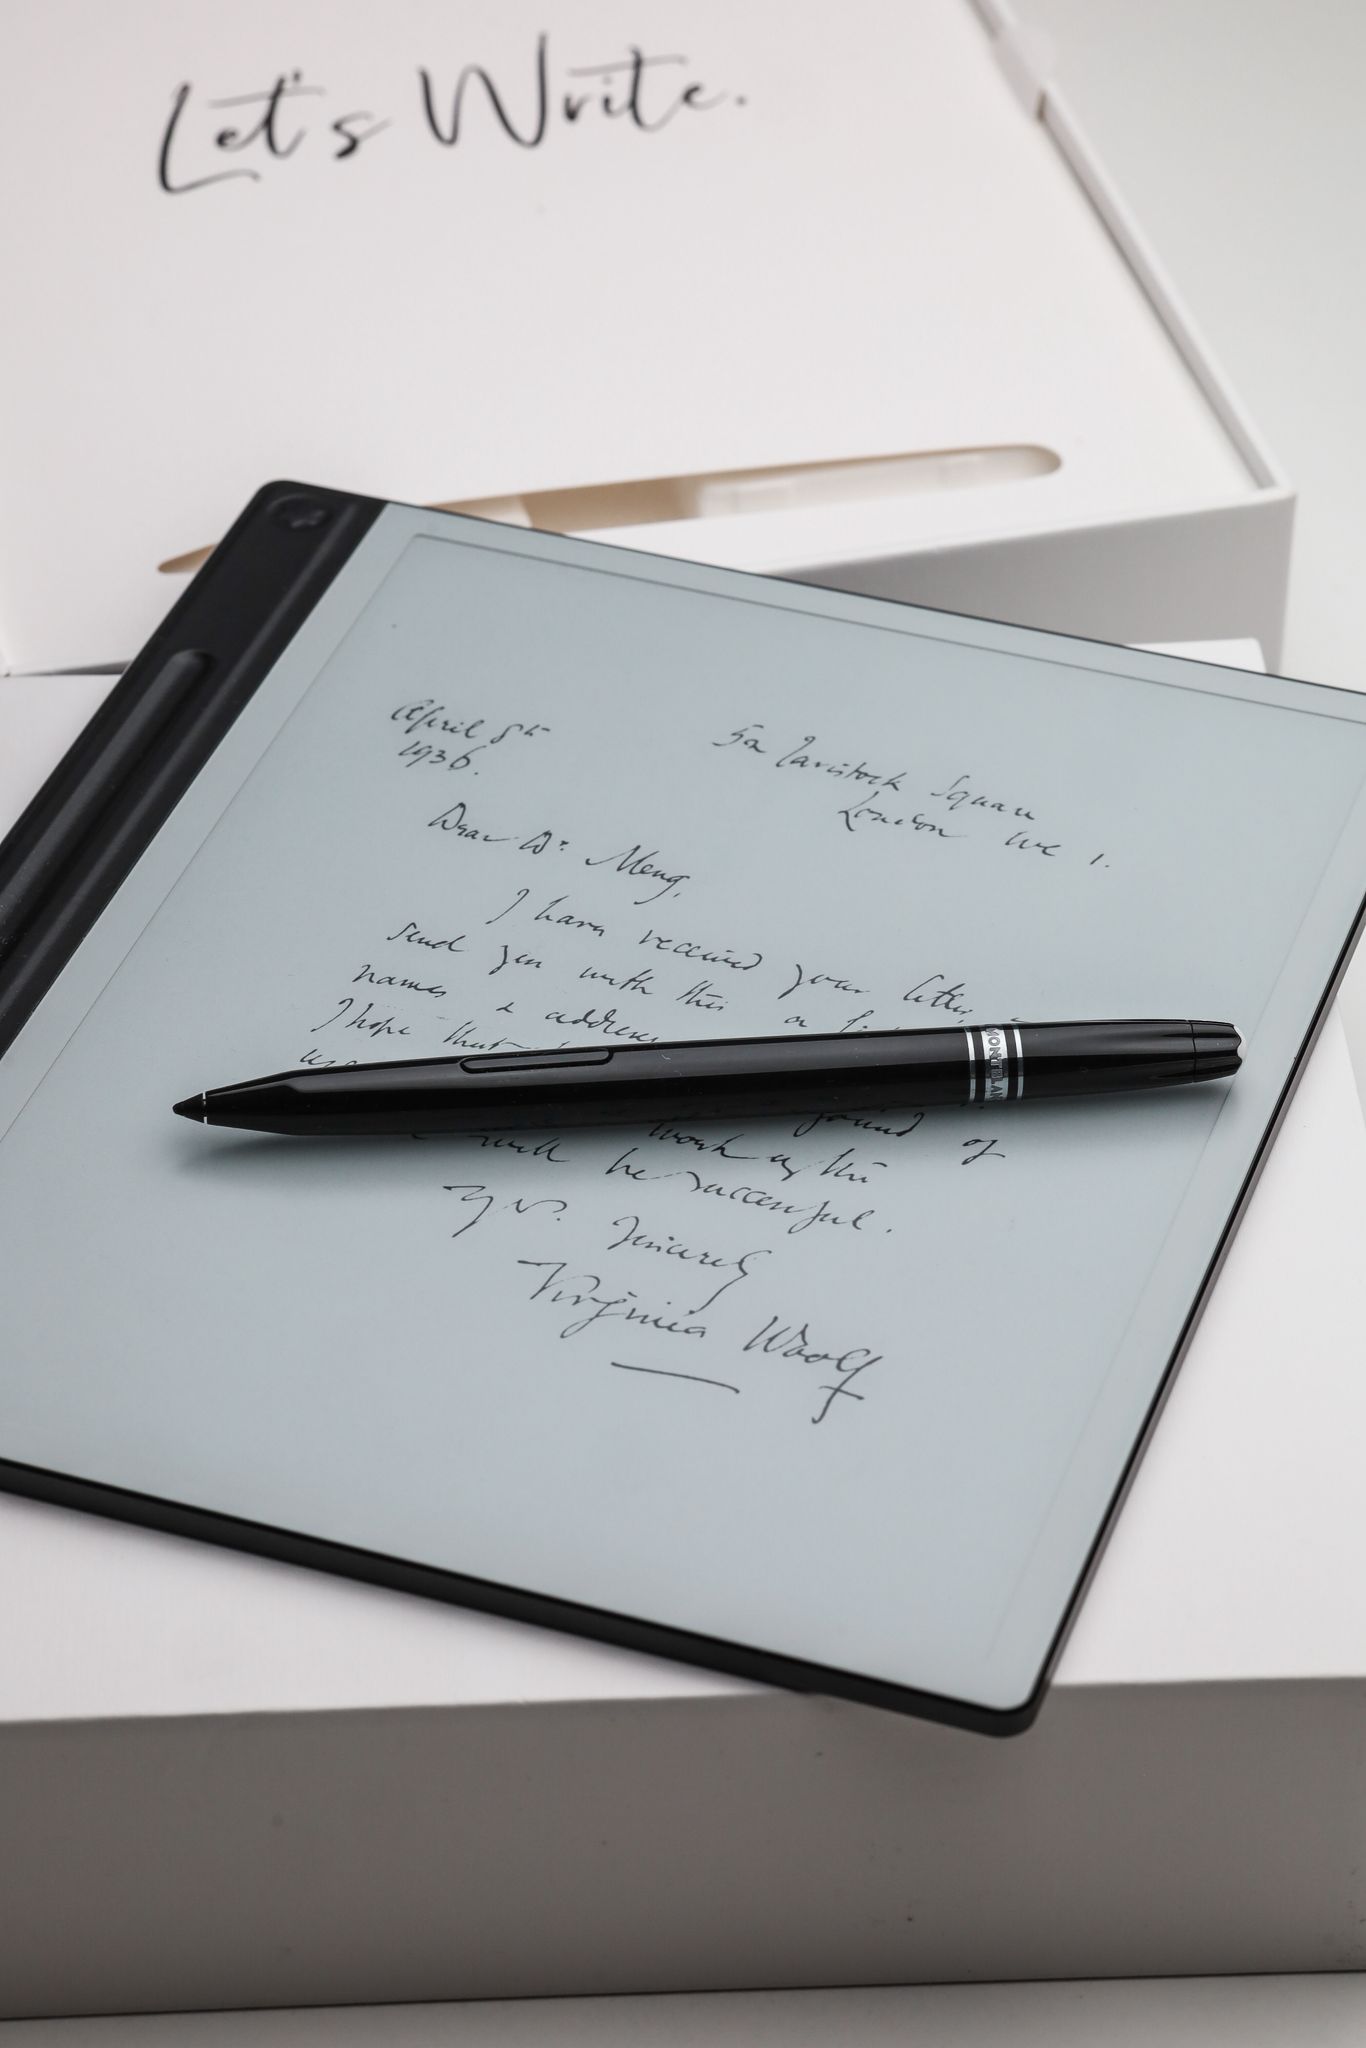 Let's Write.
April 8th
1936.
52 Tavistock Square
London WC 1.
Dear Dr. Meng,
I have received your letter,
send you with this a
names & addresses
I hope that
found of
work in this
will be successful.
Yrs. Sincerely
Virginia Woolf
MONTBLAN